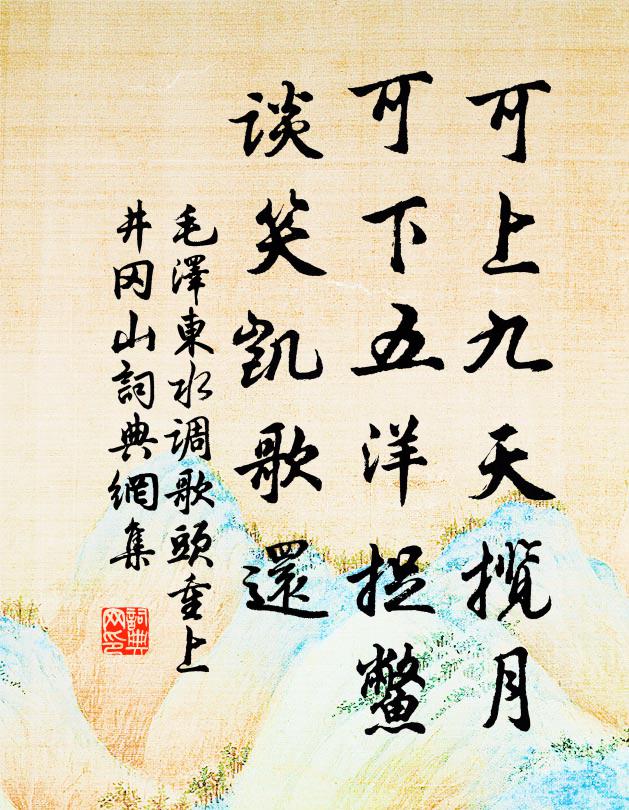 可上九天揽月
可下五洋捉鳖
谈笑凯歌還
毛澤東水调歌頭重上
井冈山詞典網集
詞典网印